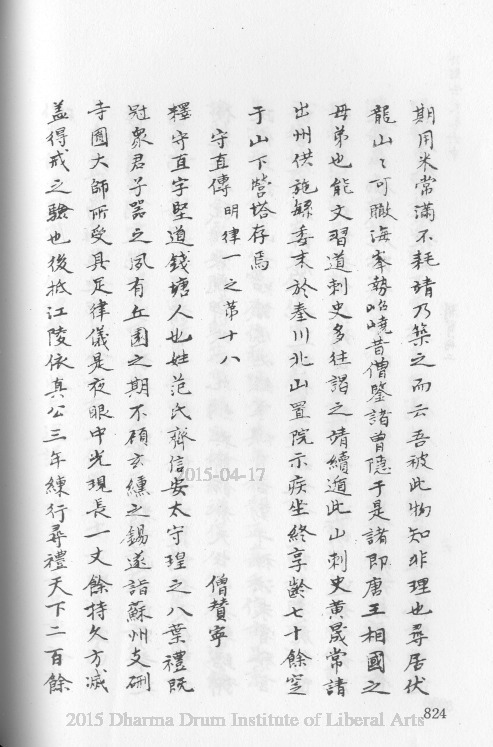 期用米常滿不耗靖乃築之而云吾被此物知非理也尋居伏
龍山〻可瞰海峯勢岧嶢昔僧鑒諸曾隱于是諸即唐王相國之
母弟也能文習道刺史多往謁之靖續遁此山刺史黃晟常請
出州供施繇委末於奉川北山置院示疾坐終享齡七十餘窆
于山下營塔存焉
守直傳 明律一之第十八 僧贊寧
釋守直字堅道錢塘人也姓范氏齊信安太守瑝之八葉禮既
冠衆君子器之夙有丘園之期不顧玄纁之錫遂詣蘇州支硎
寺圓大師所受具足律儀是夜眼中光現長一丈餘持久方滅
盖得戒之驗也後抵江陵依真公三年練行尋禮天下二百餘
824
2015-04-17
2015 Dharma Drum Institute of Liberal Arts